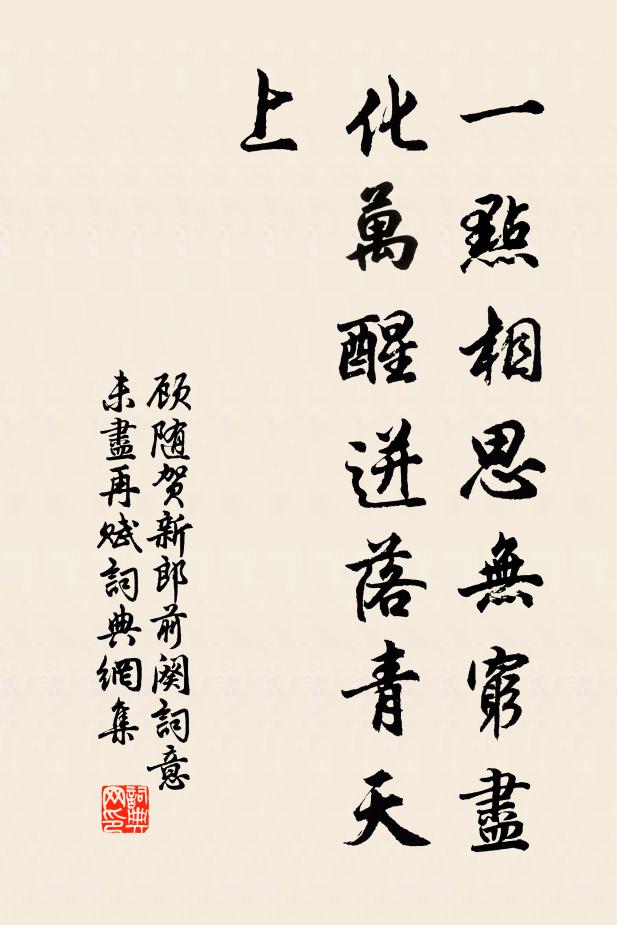 一點相思無窮盡
化萬醒迸落青天
上
顾随贺新郎前阕詞意
未盡再赋詞典網集
詞典
网印